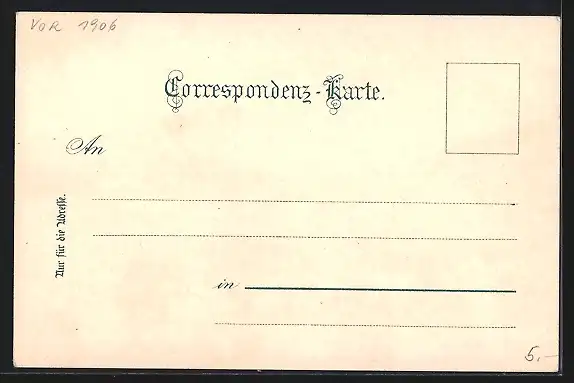 VOR 1906
Correspondenz-Karte.
An
Nur für die Adresse.
in
5,-